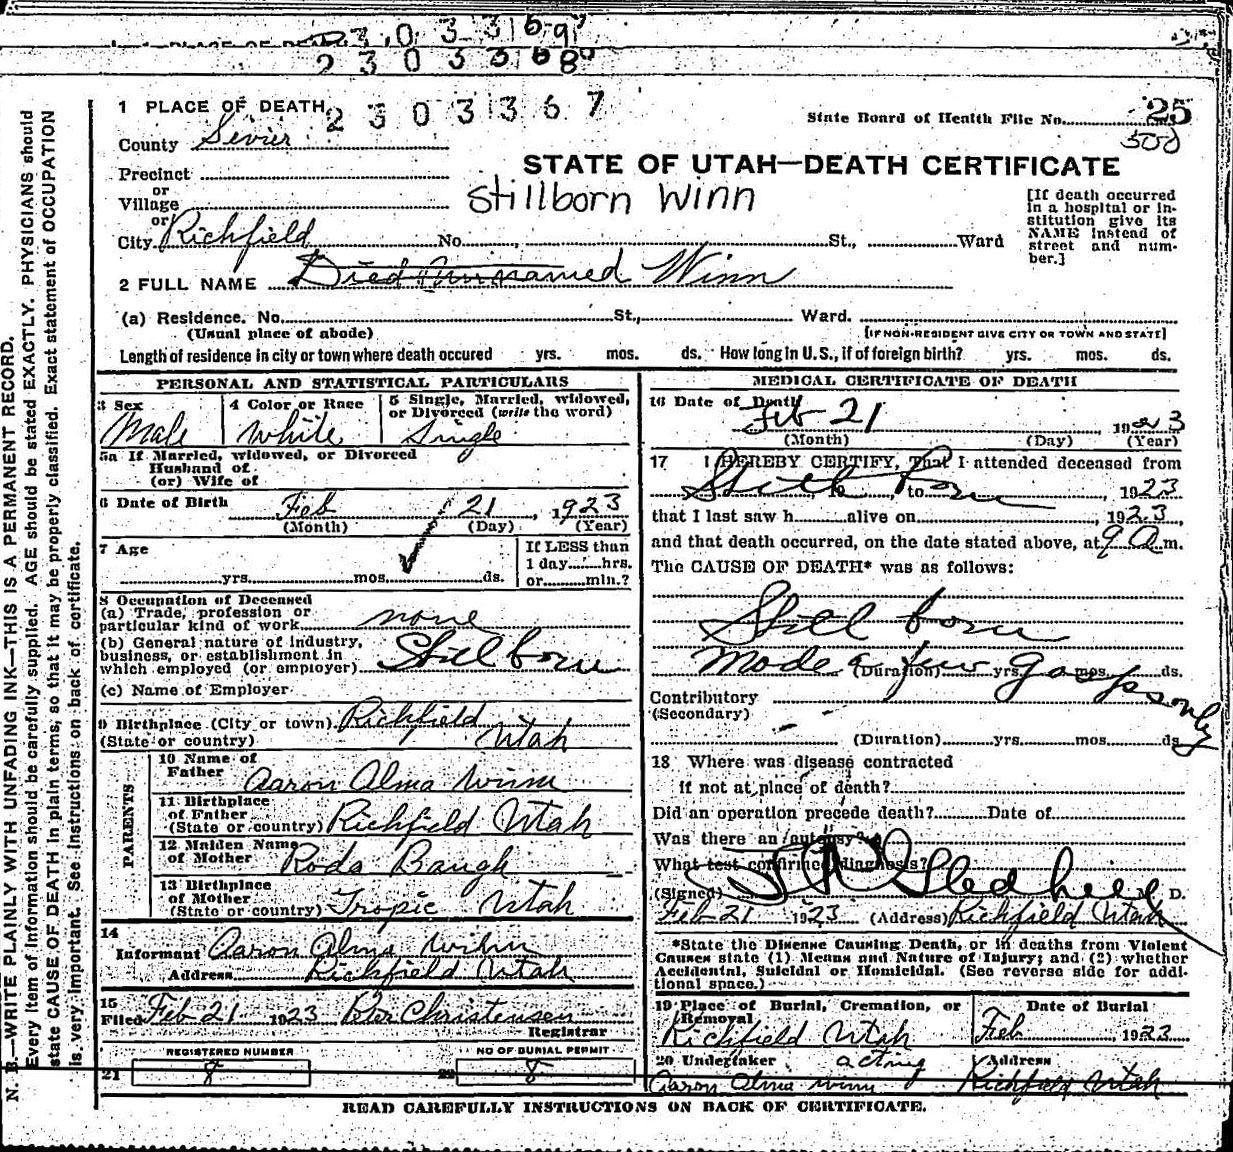 1 PLACE OF DEATH
2303369
230336 8
2303367
State Board of Health File No. 25
500
County Sevier
STATE OF UTAH—DEATH CERTIFICATE
Precinct
or
Village
Stillborn Winn
or
City Richfield No. St., Ward
[If death occurred in a hospital or institution give its NAME instead of street and number.]
2 FULL NAME Died Unnamed Winn
(a) Residence. No. St., Ward.
(Usual place of abode)
[IF NON-RESIDENT GIVE CITY OR TOWN AND STATE]
Length of residence in city or town where death occured yrs. mos. ds. How long in U.S., if of foreign birth? yrs. mos. ds.
PERSONAL AND STATISTICAL PARTICULARS
3 Sex
Male
4 Color or Race
White
5 Single, Married, widowed, or Divorced (write the word)
Single
5a If Married, widowed, or Divorced
Husband of
(or) Wife of
6 Date of Birth Feb 21, 1923
(Month) (Day) (Year)
7 Age
yrs. mos. ds.
If LESS than
1 day hrs.
or min.?
8 Occupation of Deceased
(a) Trade, profession or
particular kind of work none
(b) General nature of industry,
business, or establishment in
which employed (or employer) Still born
(c) Name of Employer
9 Birthplace (City or town) Richfield
(State or country) Utah
PARENTS
10 Name of
Father Aaron Alma Winn
11 Birthplace
of Father
(State or country) Richfield Utah
12 Maiden Name
of Mother Roda Baugh
13 Birthplace
of Mother
(State or country) Tropic Utah
14
Informant Aaron Alma Winn
Address Richfield Utah
15
Filed Feb 21 1923 Peter Christensen
Registrar
REGISTERED NUMBER
21 8
NO OF BURIAL PERMIT
22 8
MEDICAL CERTIFICATE OF DEATH
16 Date of Death
Feb 21 1923
(Month) (Day) (Year)
17 I HEREBY CERTIFY, That I attended deceased from
Still born to , 1923
that I last saw h alive on , 1923,
and that death occurred, on the date stated above, at 9 a m.
The CAUSE OF DEATH* was as follows:
Still born
Made a few gasps only
(Duration) yrs. mos. ds.
Contributory
(Secondary)
(Duration) yrs. mos. ds.
18 Where was disease contracted
if not at place of death?
Did an operation precede death? Date of
Was there an autopsy?
What test confirmed diagnosis?
(Signed) Gledhill M. D.
Feb 21 1923 (Address) Richfield Utah
*State the Disease Causing Death, or in deaths from Violent
Causes state (1) Means and Nature of Injury; and (2) whether
Accidental, Suicidal or Homicidal. (See reverse side for additional space.)
19 Place of Burial, Cremation, or
Removal
Richfield Utah
Date of Burial
Feb 1923
20 Undertaker acting
Aaron Alma Winn
Address
Richfield Utah
READ CAREFULLY INSTRUCTIONS ON BACK OF CERTIFICATE.
N. B.—WRITE PLAINLY WITH UNFADING INK—THIS IS A PERMANENT RECORD.
Every item of information should be carefully supplied. AGE should be stated EXACTLY. PHYSICIANS should
state CAUSE OF DEATH in plain terms, so that it may be properly classified. Exact statement of OCCUPATION
is very important. See instructions on back of certificate.